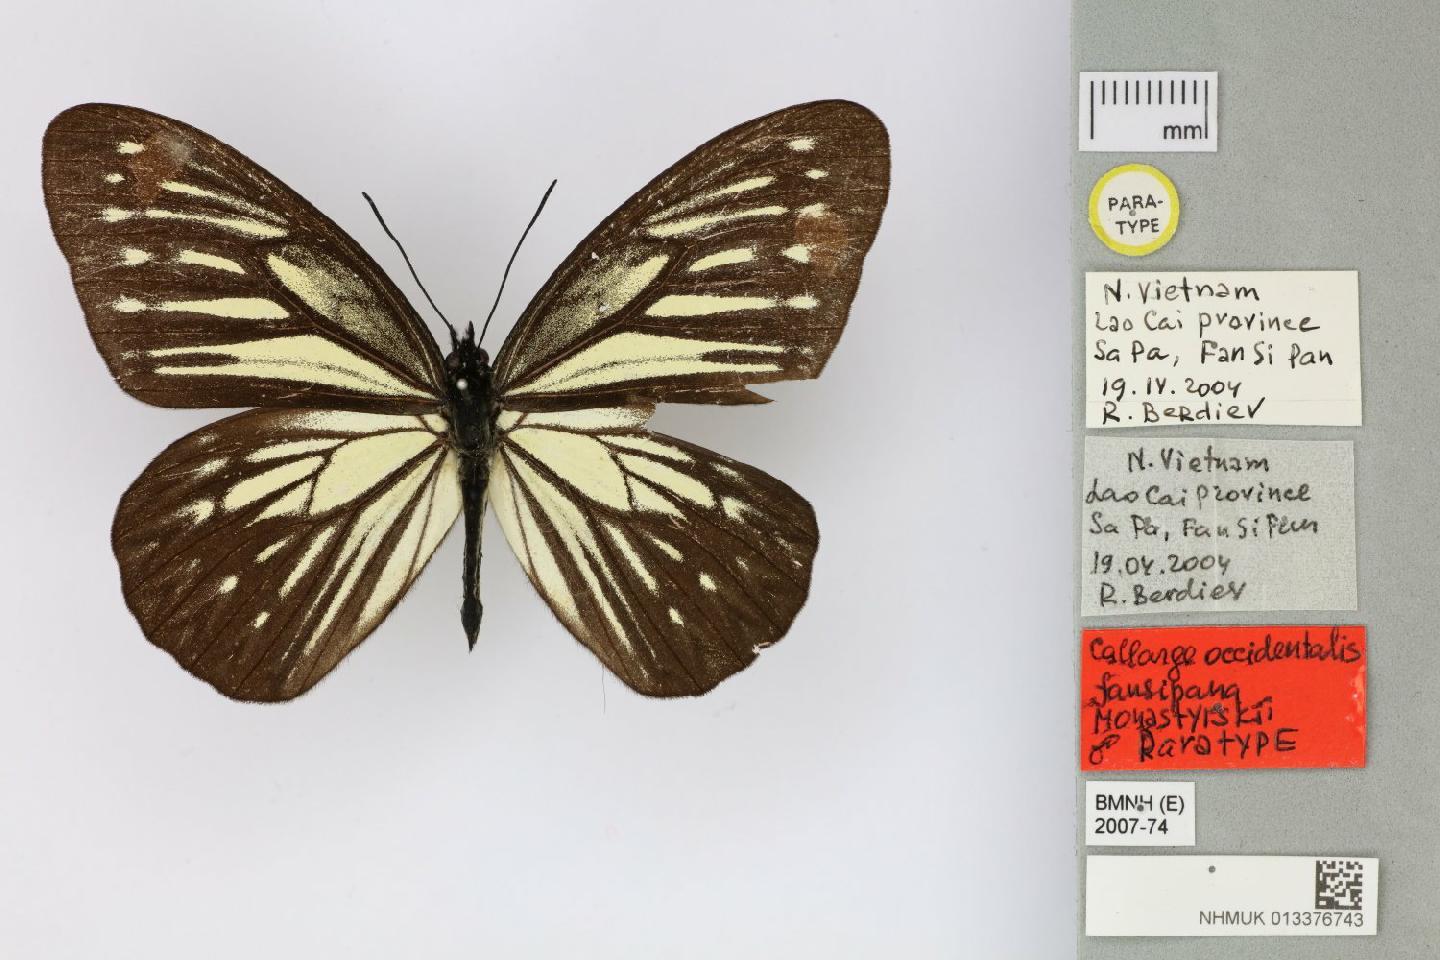 mm
PARA-
TYPE
N. Vietnam
Lao Cai province
Sa Pa, Fan Si Pan
19. IV. 2004
R. Berdiev
N. Vietnam
Lao Cai province
Sa Pa, Fan Si Pan
19.04.2004
R. Berdiev
Callarge occidentalis
fansipana
Monastyrskii
♂ Paratype
BMNH (E)
2007-74
NHMUK 013376743